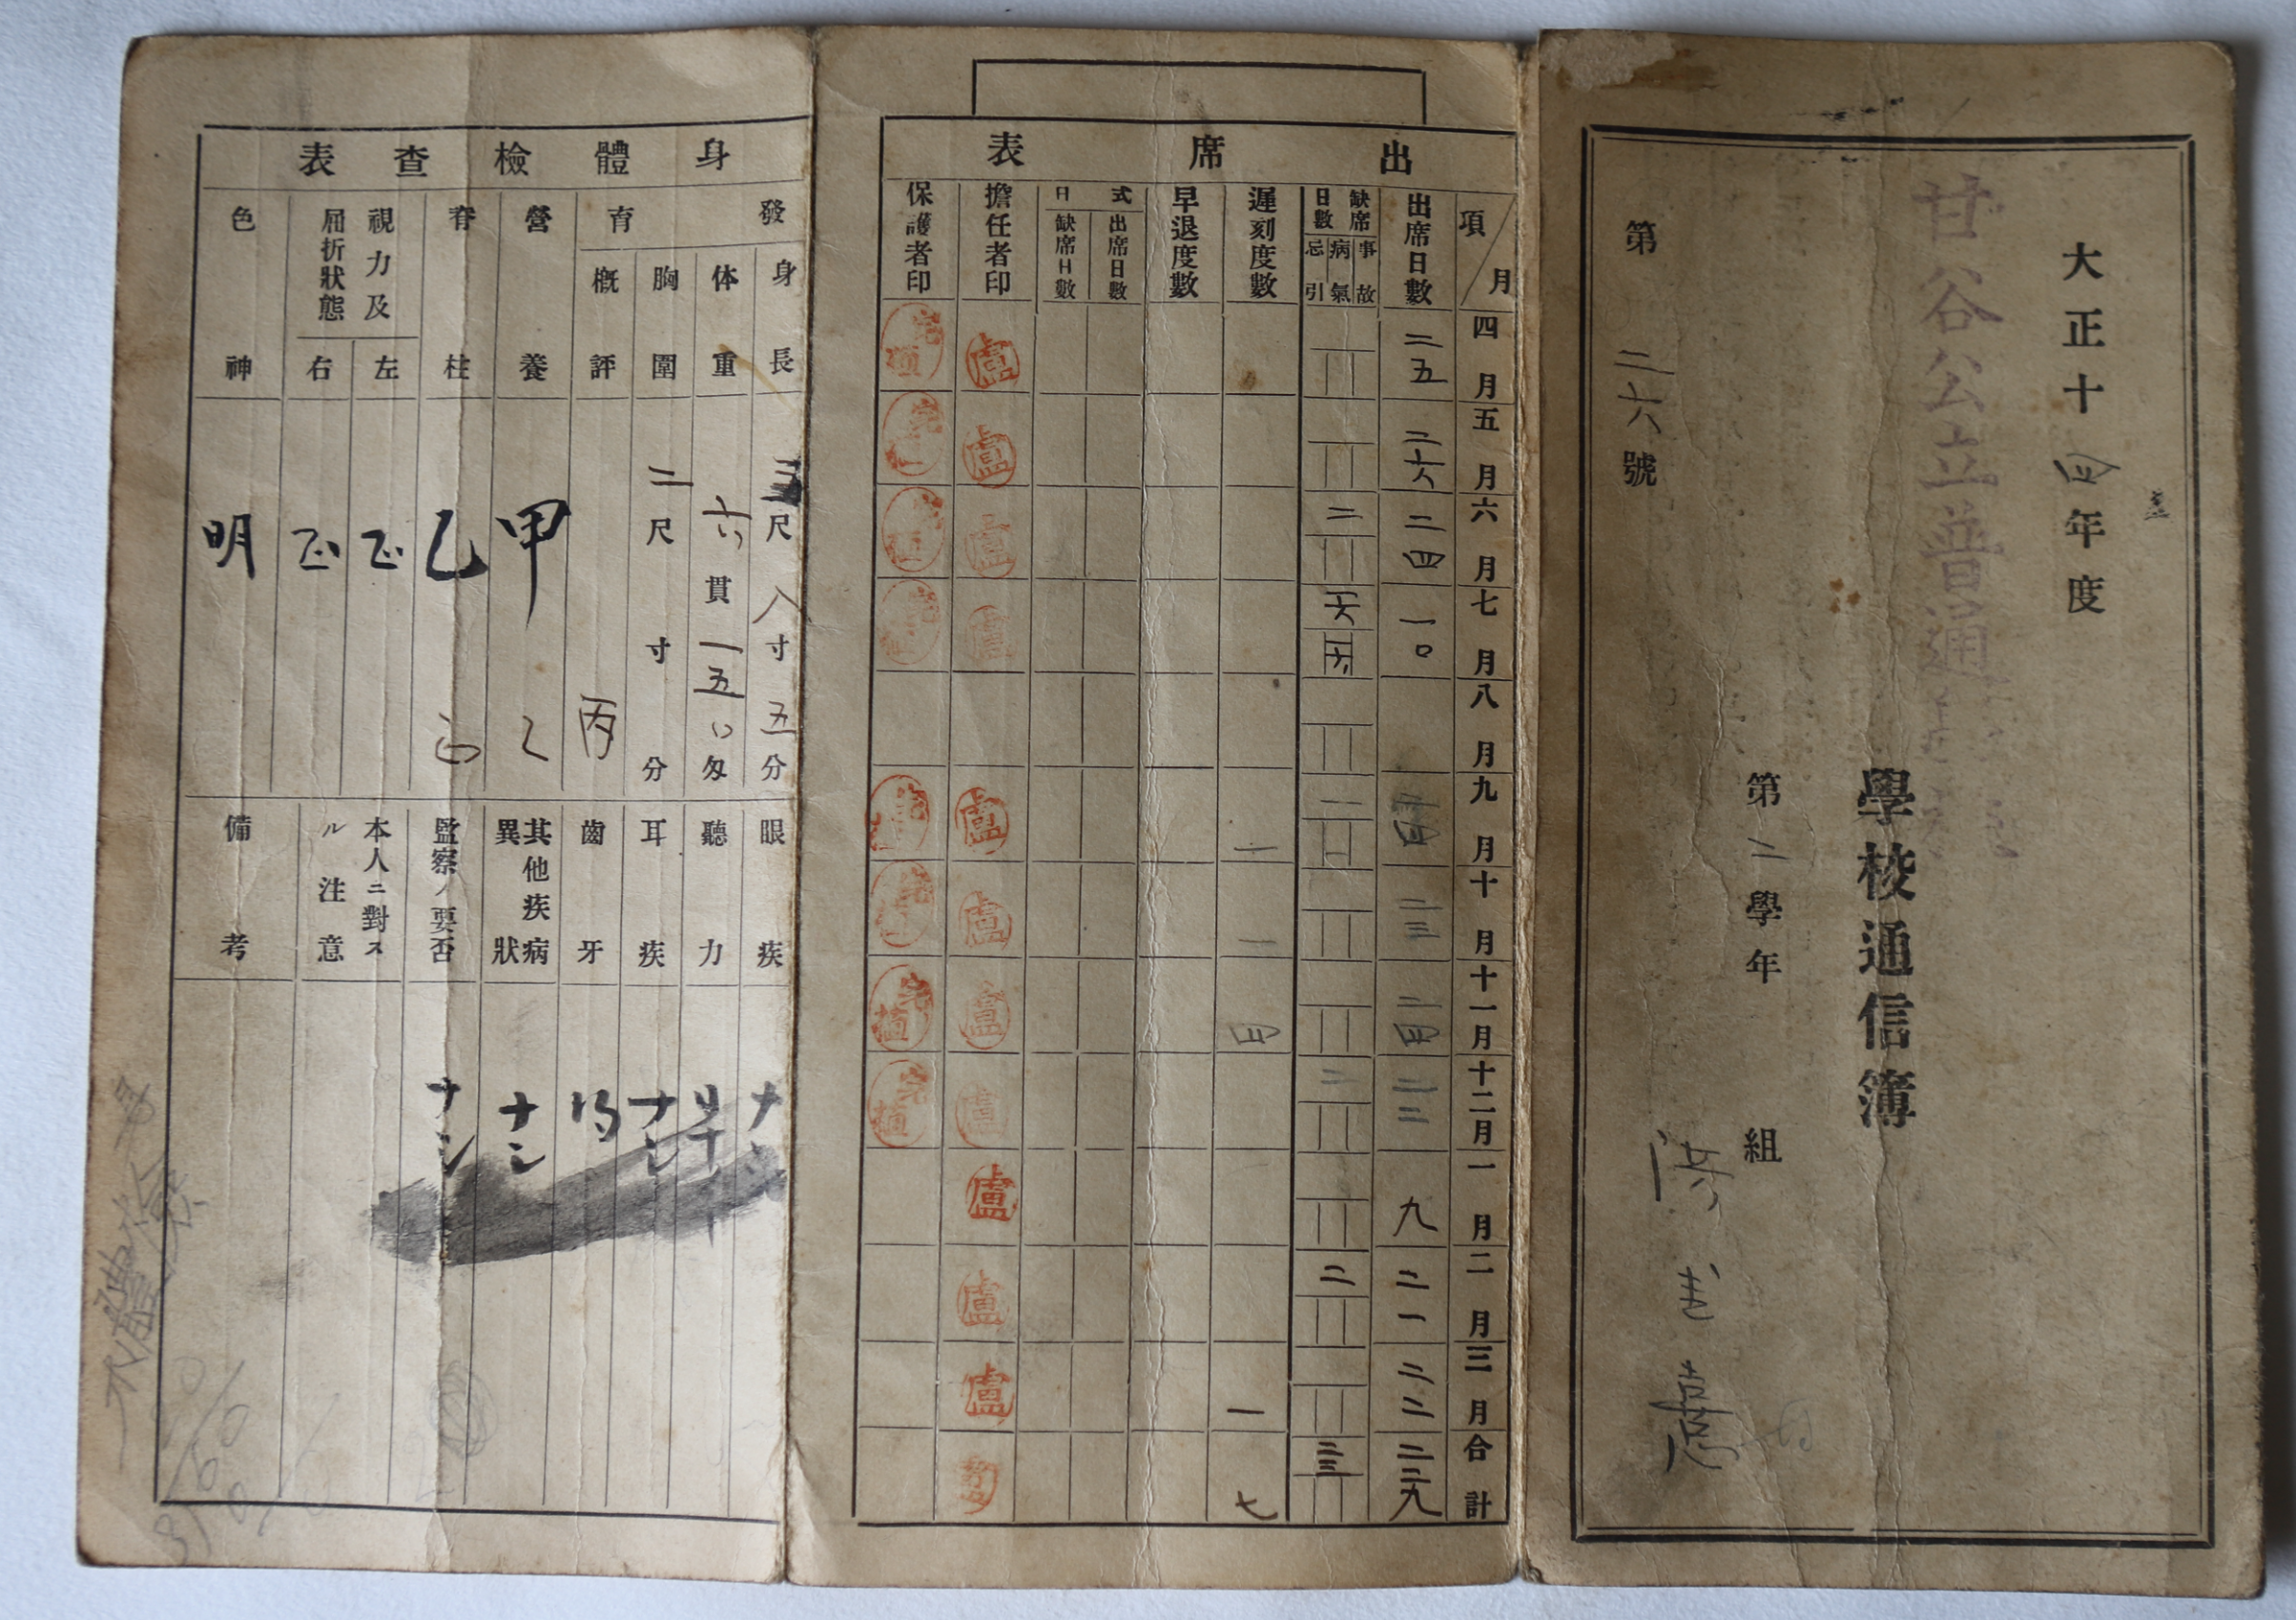 大正十四年度
甘谷公立普通
學校通信簿
第二學年
組
第二六號
出席表
項/月
出席日數
缺席日數
事故
病氣
忌引
遲刻度數
早退度數
式日
出席日數
缺席日數
擔任者印
保護者印
四月
二五
盧
五月
二六
盧
六月
二四
二
盧
七月
一〇
盧
八月
九月
二四
一
盧
十月
二三
一
盧
十一月
二四
四
盧
十二月
二三
二
盧
一月
九
盧
二月
二一
二
盧
三月
二二
一
盧
合計
二二九
七
身體檢查表
發育
身長
体重
胸圍
概評
營養
脊柱
視力及屈折狀態
左
右
色神
尺八寸五分
六貫一五〇匁
二尺
寸
分
丙
甲
乙
乙
正
正
正
明
眼疾
聽力
耳疾
齒牙
其他疾病異狀
監察ノ要否
本人ニ對スル注意
備考
ナシ
ナシ
ナシ
ナシ